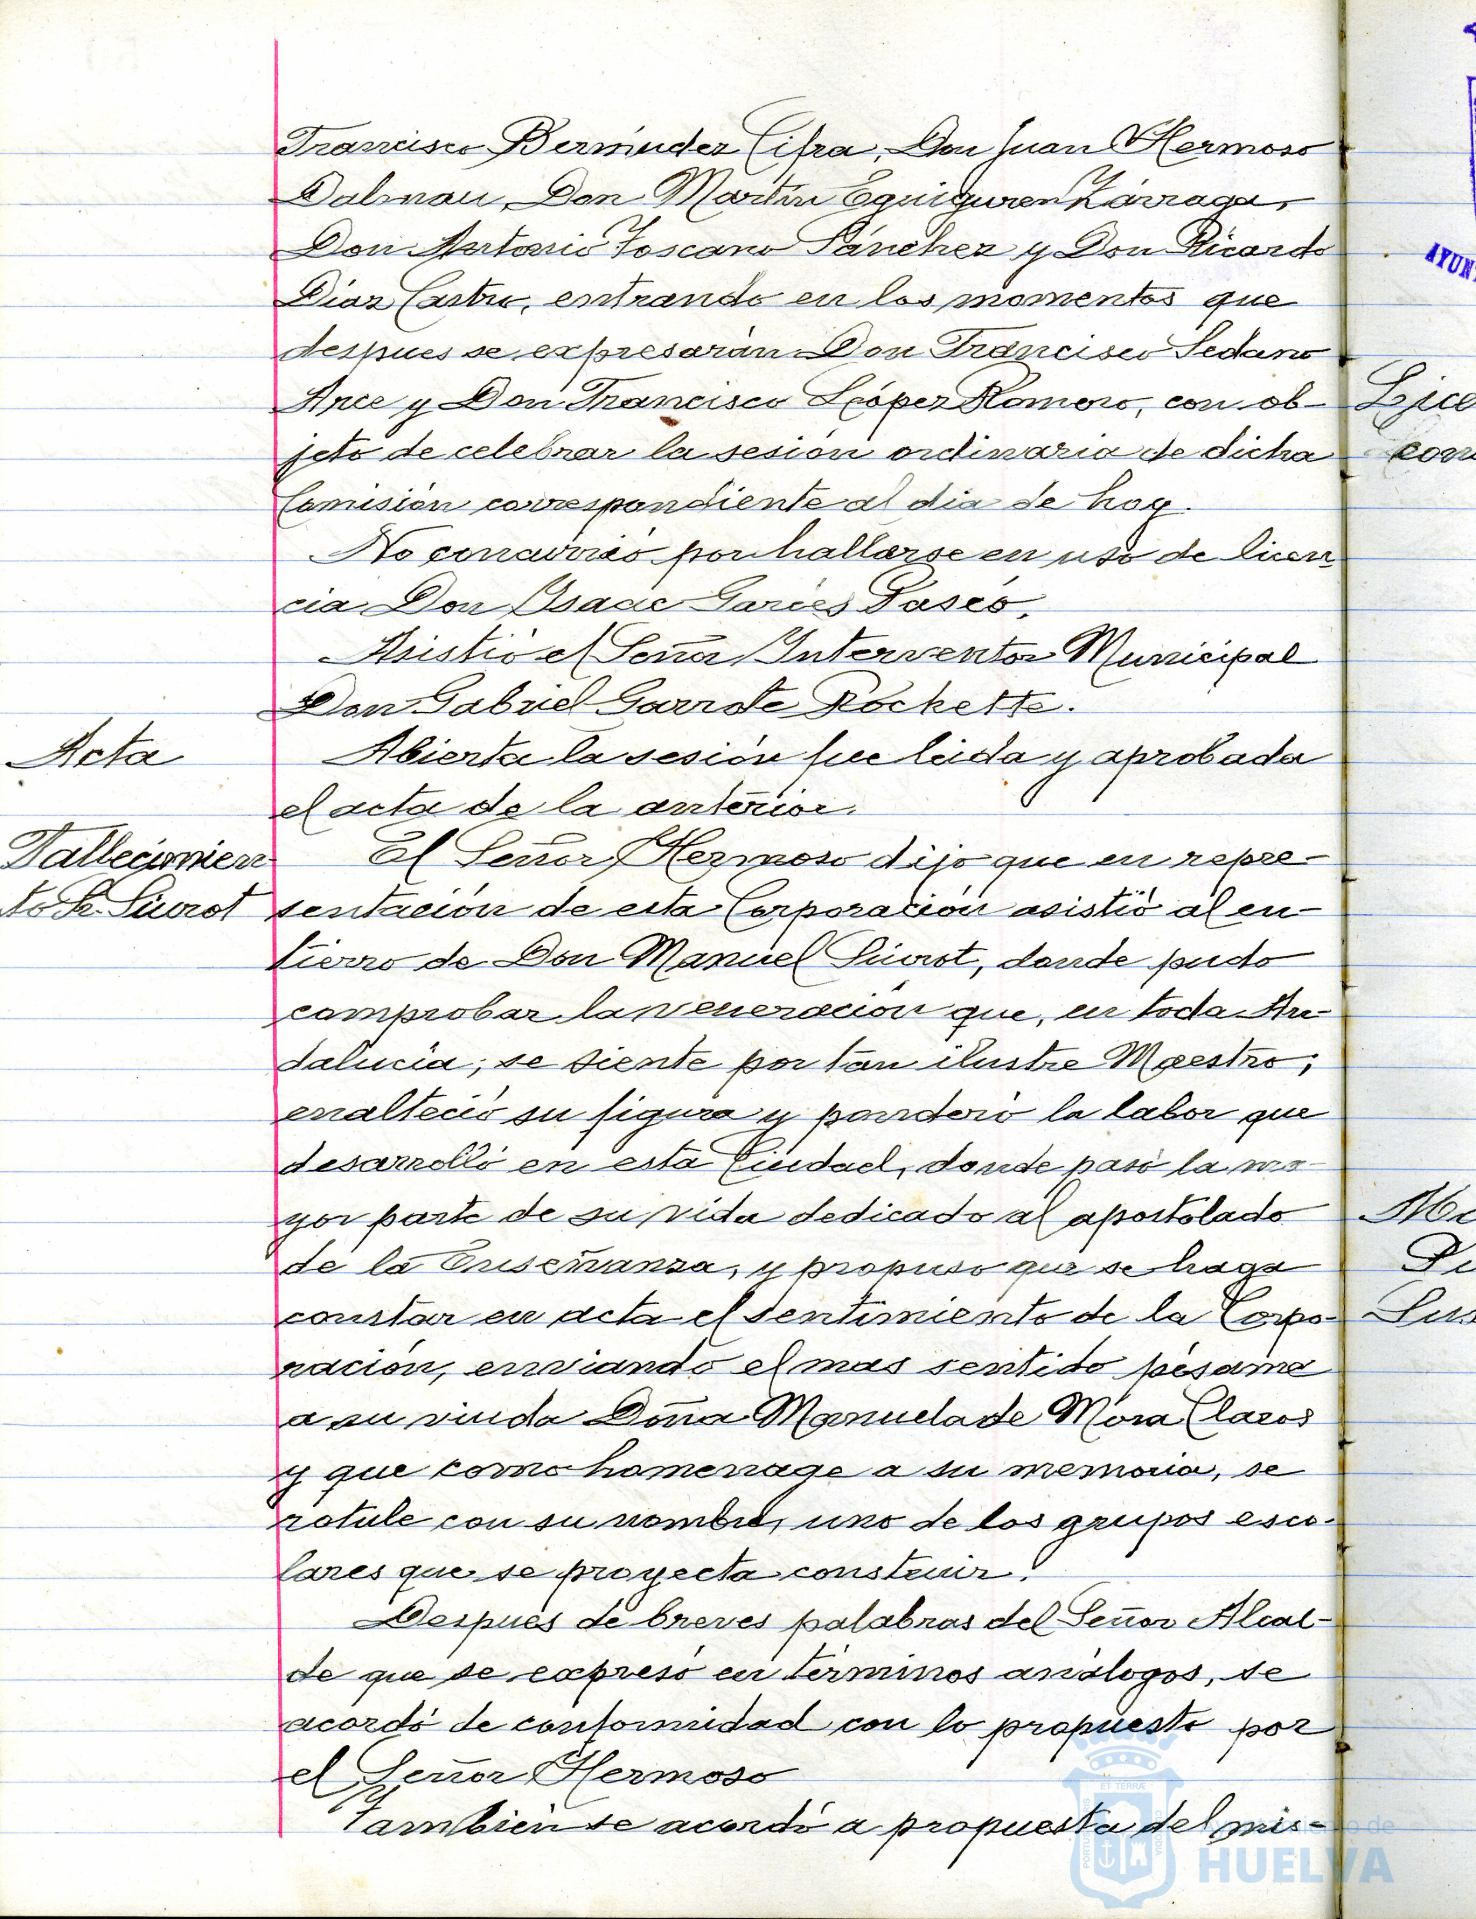 Francisco Bermúdez Cifra, Don Juan Hermoso
Dalmau, Don Martín Eguiguren Zárraga,
Don Antonio Toscano Sánchez y Don Ricardo
Díaz Castro, entrando en los momentos que
despues se expresarán Don Francisco Sedano
Arce y Don Francisco López Romero, con ob-
jeto de celebrar la sesión ordinaria de dicha
Comisión correspondiente al dia de hoy.
No concurrió por hallarse en uso de licen
cia Don Isaac Garcés Paseo.
Asistió el Señor Interventor Municipal
Don Gabriel Garrote Rockette.
Acta
Abierta la sesión fue leida y aprobada
el acta de la anterior.
Fallecimien
to Sr. Siurot
El Señor Hermoso dijo que en repre-
sentación de esta Corporación asistió al en-
tierro de Don Manuel Siurot, donde pudo
comprobar la veneración que, en toda An-
dalucía; se siente por tan ilustre Maestro;
enalteció su figura y ponderó la labor que
desarrolló en esta Ciudad, donde pasó la ma-
yor parte de su vida dedicado al apostolado
de la Enseñanza, y propuso que se haga
constar en acta el sentimiento de la Corpo-
ración, enviando el mas sentido pésame
a su viuda Doña Manuela de Mora Claros
y que como homenage a su memoria, se
rotule con su nombre, uno de los grupos esco-
lares que se proyecta construir.
Despues de breves palabras del Señor Alcal-
de que se expresó en términos análogos, se
acordó de conformidad con lo propuesto por
el Señor Hermoso
Tambien se acordó a propuesta del mis-
HUELVA